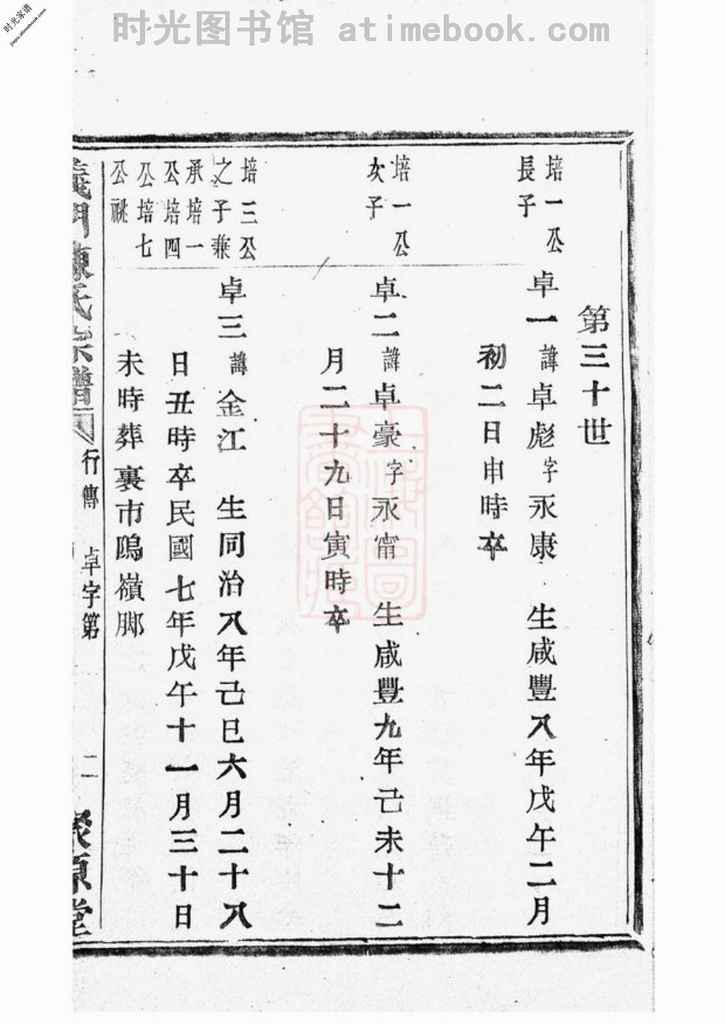 时光图书馆 atimebook.com
时光家谱
第三十世
培一公
長子
卓一 諱卓彪 字永康 生咸豐八年戊午二月
初二日申時卒
培一公
次子
卓二 諱卓豪 字永甯 生咸豐九年己未十二
月二十九日寅時卒
培三公
之子兼
承培一
公培四
公培七
公祧
卓三 諱金江 生同治八年己巳六月二十八
日丑時卒民國七年戊午十一月三十日
未時葬裏市隝嶺脚
義門陳氏宗譜
行傳 卓字第 二
聚原堂